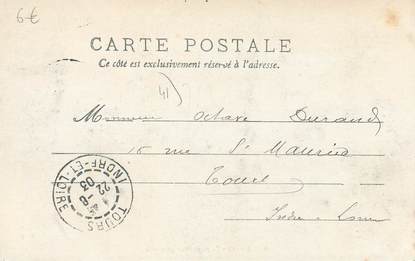 6€
CARTE POSTALE
Ce côté est exclusivement réservé à l'adresse.
41
Monsieur Octave Durand
16 rue St Maurice
Tours
Indre & Loire
TOURS
INDRE-ET-LOIRE
22 -8
03